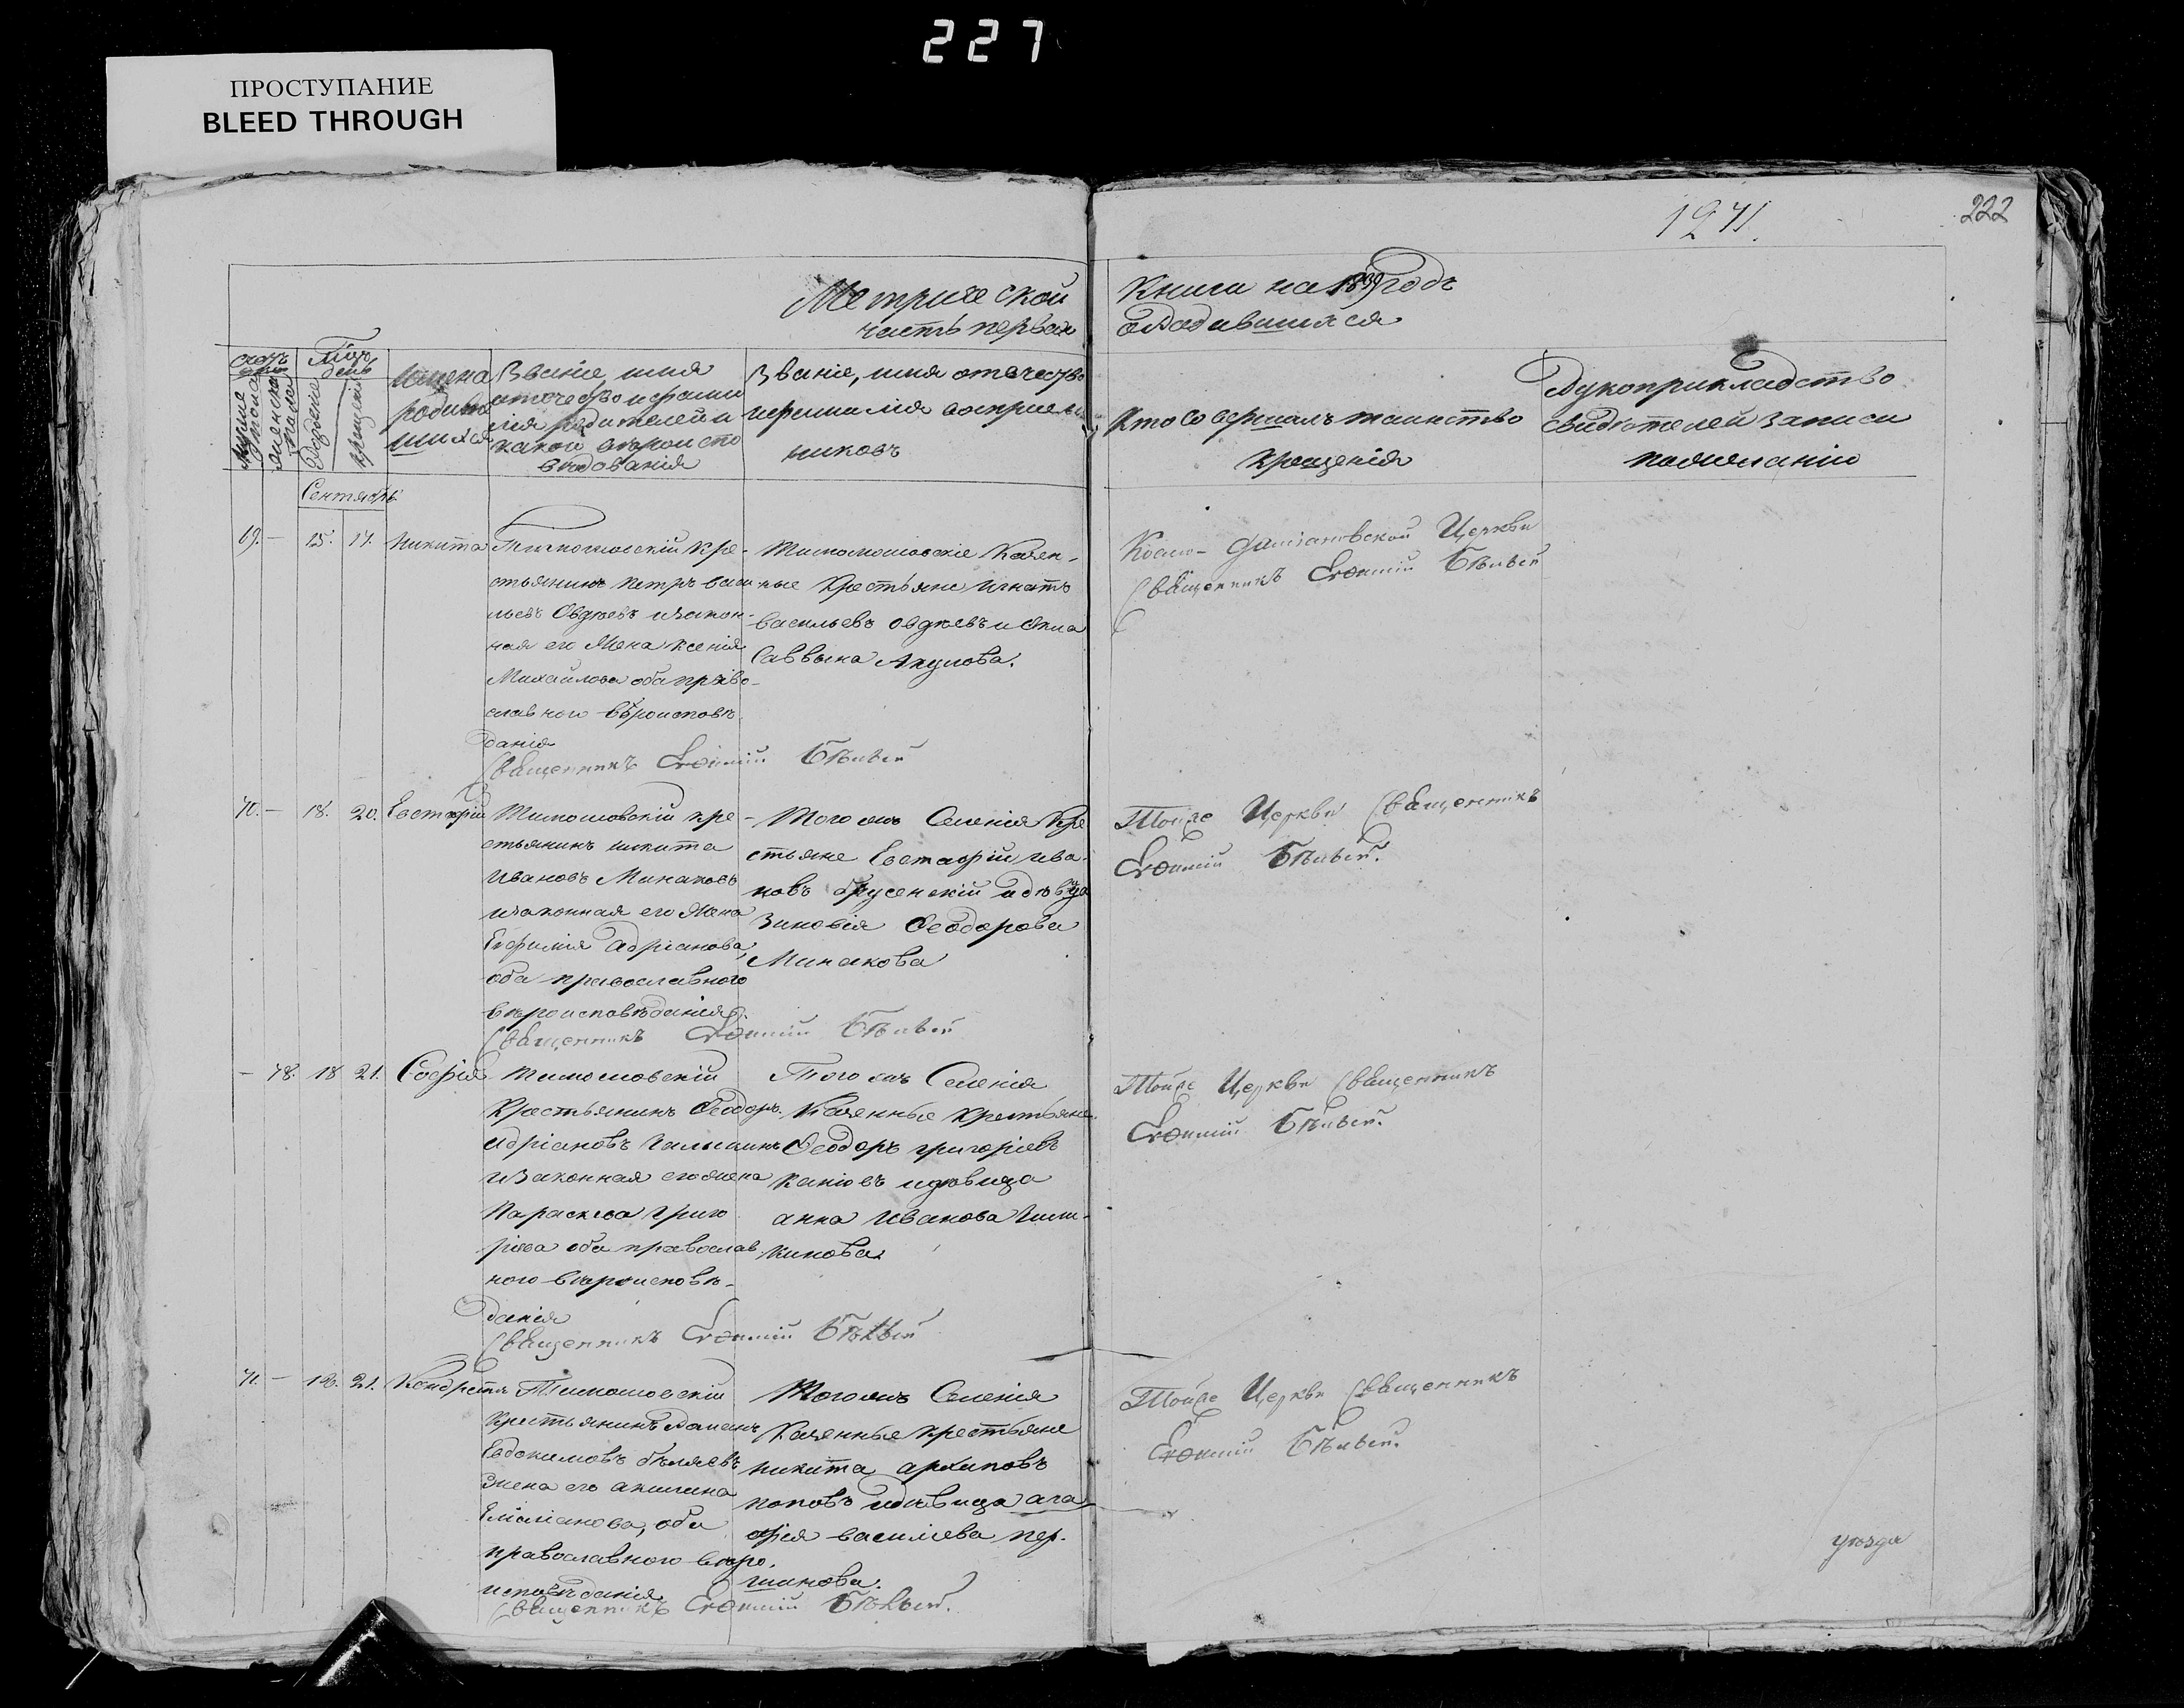 227
ПРОСТУПАНИЕ
BLEED THROUGH
1271.
222
Метрической
Книги на годъ
часть первая
Счетъ
Мѣсяцъ
день
Мужеска
женска
пола
рожденія
крещенія
Имена
родив
шихся
Званіе, имя
отечество и фами
лія родителей и
какого вѣроиспо
вѣдованія
Званіе, имя отечество
и фамилія воспріем
никовъ
Кто совершалъ таинство
крещенія
Рукоприкладство
свидѣтелей записи
по желанію
Сентябрь
69. — 15. 17. Никита
Тимошовскій Кре-
стьянинъ Петръ Васи
льевъ Овдѣевъ и закон-
ная его Жена Ксенія
Михайлова оба право-
славного вѣроисповѣ
данія
Священникъ Евфимій
Тимошовскіе Казен-
ные Крестьяне Игнатъ
Васильевъ Овдѣевъ и
Саввына Акулова.
Космо-Даміановской Церкви
Священникъ Евфимій
70. — 18. 20. Евстафій
Тимошовскій кре-
стьянинъ Никита
Ивановъ Минаковъ
и законная его Жена
Евфимія Адріанова,
оба православного
вѣроисповѣданія
Священникъ Евфимій
Того жъ Селенія Кре
стьяне Евстафій Ива-
новъ Брусенскій и дѣвица
Зиновія Феодорова
Минакова
Той же Церкви Священникъ
Евфимій
— 78. 18 21. Софія
Тимошовскій
Крестьянинъ Феодоръ
Адріановъ
и Законная его жена
Параскева Григо
ріева оба православ
ного вѣроисповѣ-
данія
Священникъ Евфимій
Того жъ Селенія
Казенные Крестьяне
Феодоръ Григоріевъ
и дѣвица
Анна Иванова
Той же Церкви Священникъ
Евфимій
71. — 18. 21. Кондратъ
Тимошовскій
Крестьянинъ Романъ
Евдокимовъ Бѣляевъ
Жена его Акилина
Емиліанова, оба
православного вѣро-
исповѣданія
Священникъ Евфимій
Того жъ Селенія
Казенные Крестьяне
Никита Архиповъ
Поповъ и дѣвица Ага
фія Василіева Пер-
шакова.
Той же Церкви Священникъ
Евфимій
уѣзда